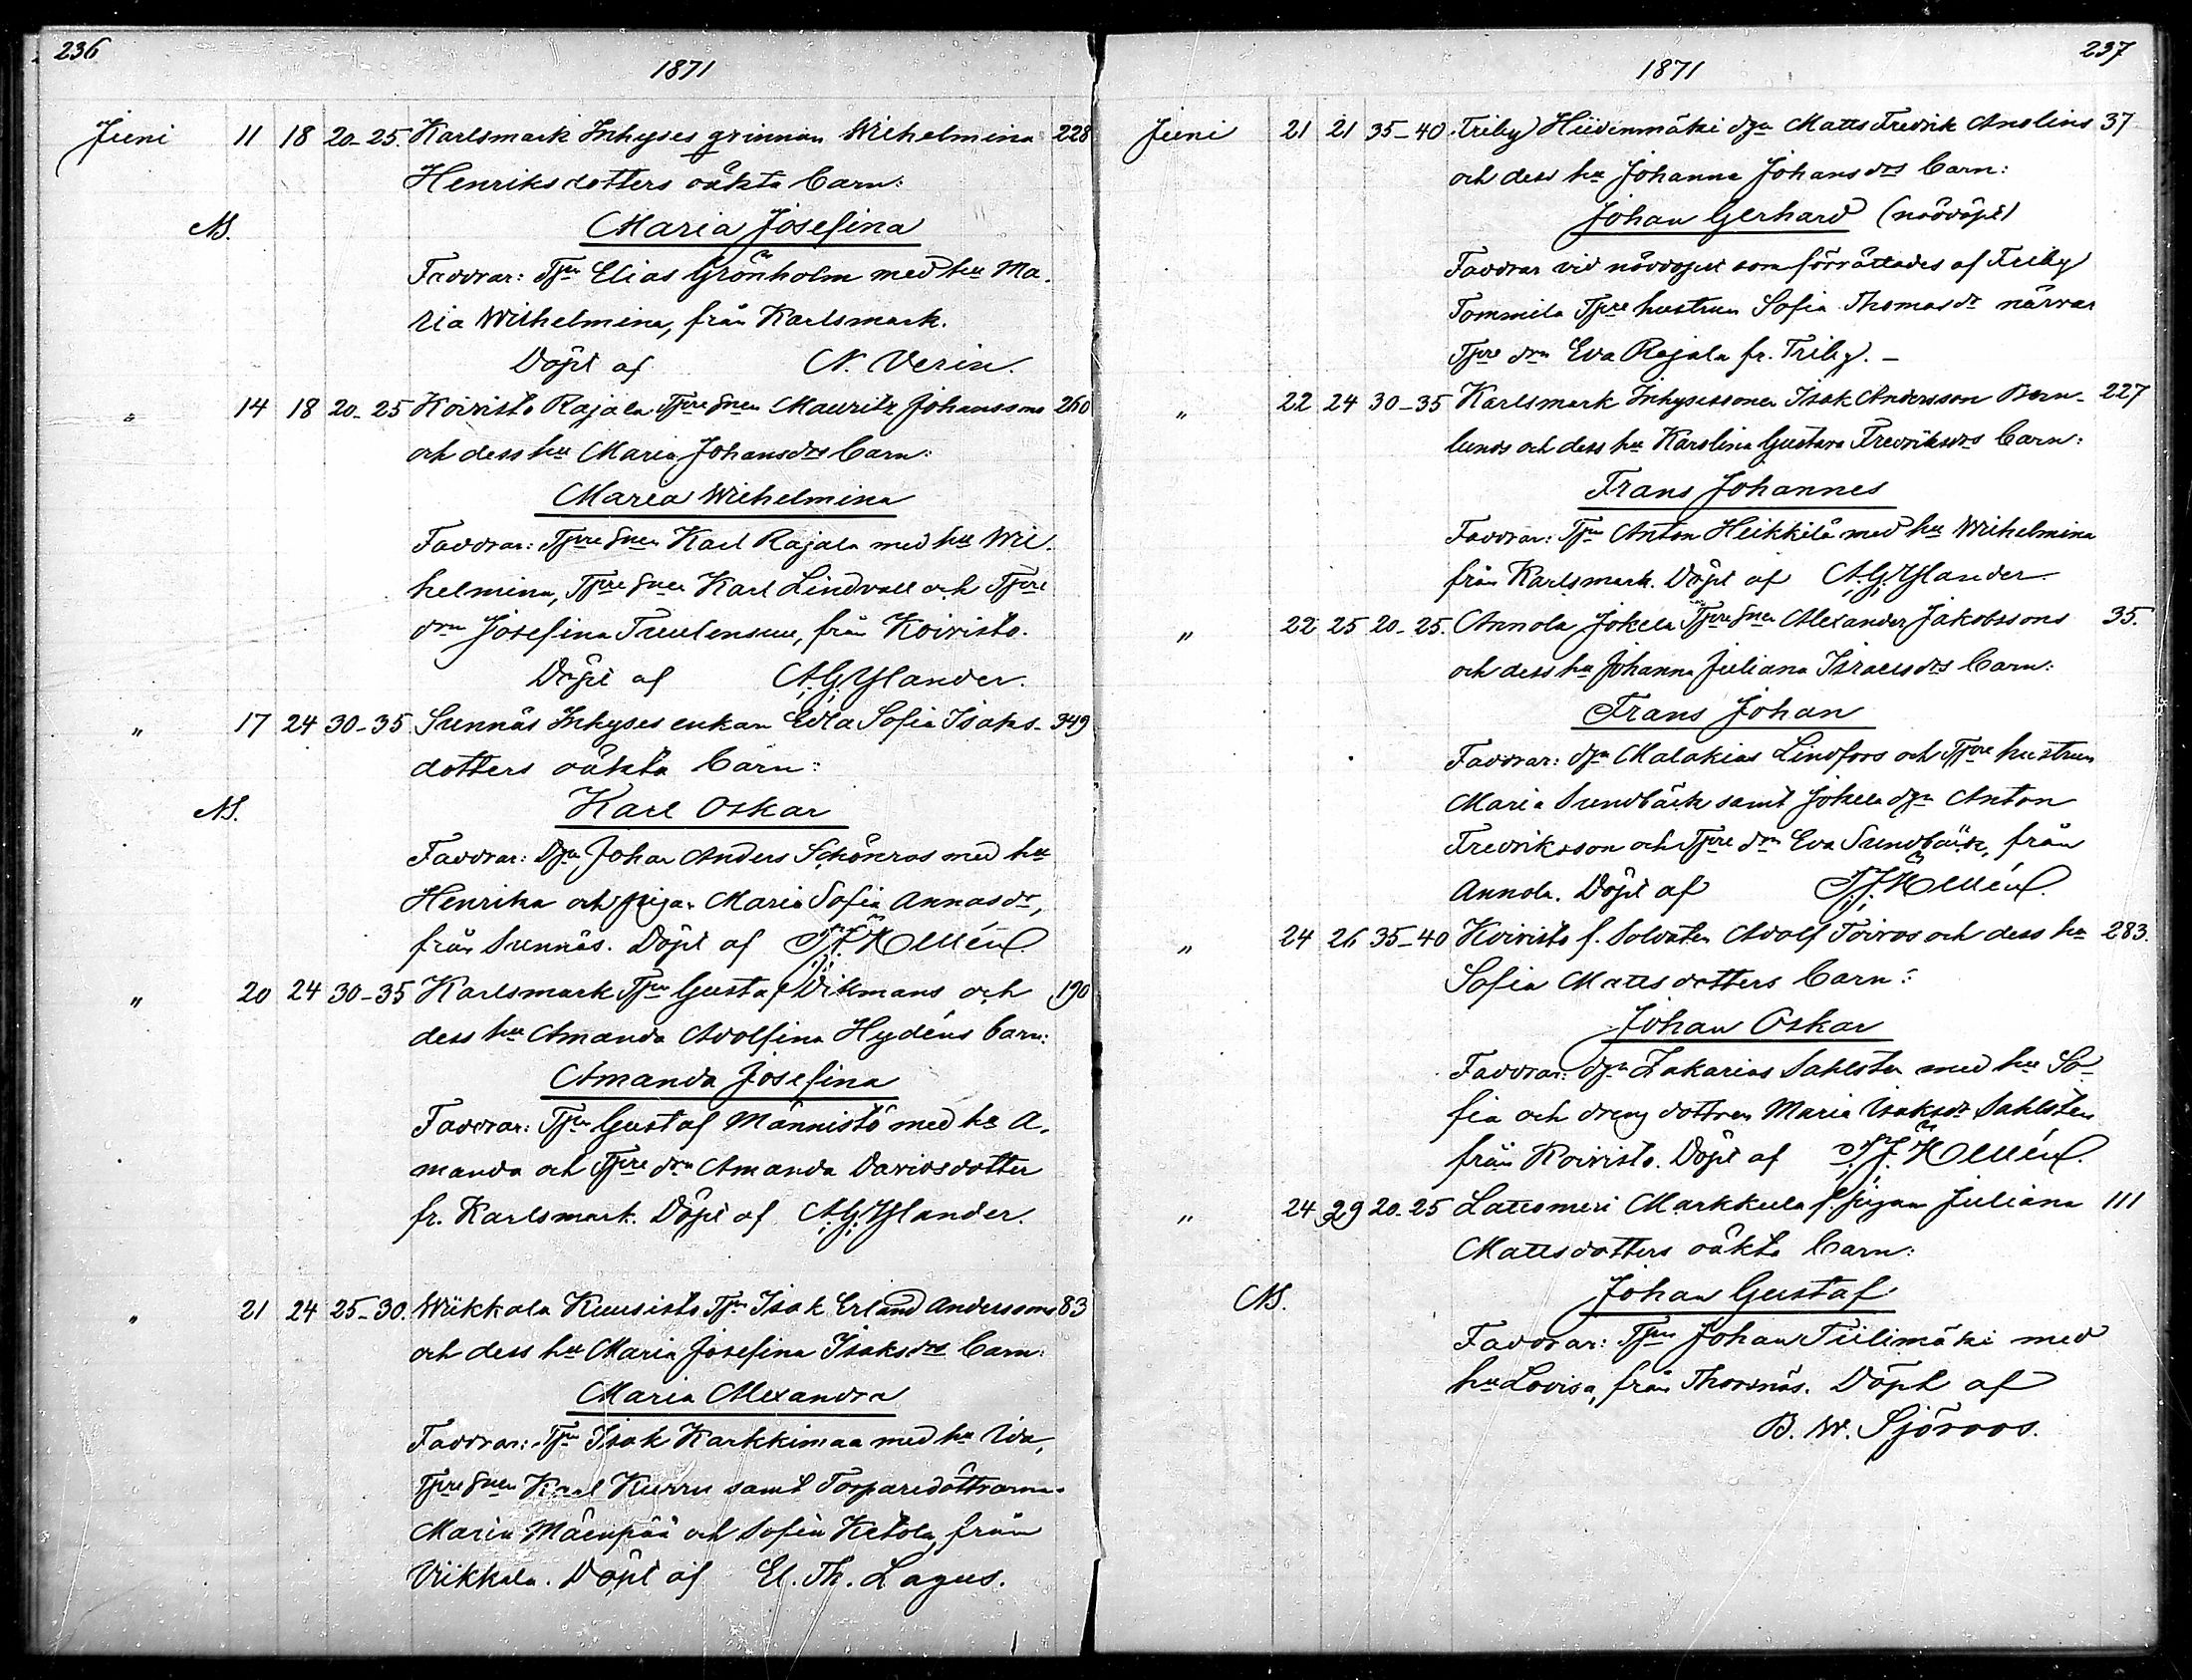 236
1871
Juni 11 18 20-25. Karlsmark Inhyses qvinnan Wilhelmina 228
Henriksdotters oäkta barn:
NB.
Maria Josefina
Faddrar: Tpn Elias Grönholm med hu Ma-
ria Wilhelmina, från Karlsmark.
Döpt af N. Verin.
" 14 18 20-25 Koivisto Rajala Tpre Snen Mauritz Johanssons 260
och dess hu Maria Johansdrs barn:
Maria Wilhelmina
Faddrar: Tpre Snen Karl Rajala med hu Wil-
helmina, Tpre Snen Karl Lindvall och Tpre
drn Josefina Tuulensuu, från Koivisto.
Döpt af A.G. Ylander.
" 17 24 30-35 Sunnäs Inhyses enkan Edla Sofia Isaks- 349
dotters oäkta barn:
NB.
Karl Oskar
Faddrar: Dgn Johan Anders Schönros med hu
Henrika och pigan Maria Sofia Annasdr,
från Sunnäs. Döpt af
" 20 24 30-35 Karlsmark Tpn Gustaf Wikmans och 190
dess hu Amanda Adolfina Hydéns barn:
Amanda Josefina
Faddrar: Tpn Gustaf Männistö med hu A-
manda och Tpre drn Amanda Davidsdotter
fr. Karlsmark. Döpt af A.G. Ylander.
" 21 24 25-30. Wiikkala Kuusisto Tpn Isak Erland Anderssons 83
och dess hu Maria Josefina Isaksdrs barn:
Maria Alexandra
Faddrar: Tpn Isak Karkkimaa med hu Ida,
Tpre Snen Karl Kurru samt Torparedöttrarna
Maria Mäenpää och Sofia Ketola, från
Viikkala. Döpt af El. Th. Lagus.
237
1871
Juni 21 21 35-40 Friby Hiidenmäki dgn Matts Fredrik Anolins 37
och dess hu Johanna Johansdrs barn:
Johan Gerhard (nöddöpt)
Faddrar vid nöddopet som förrättades af Friby
Tommila Tpre hustrun Sofia Thomasdr närvar
Tpre drn Eva Rajala fr. Friby. -
" 22 24 30-35 Karlsmark Inhysessonen Isak Andersson Bern- 227
lunds och dess hu Karolina Gustava Fredriksdrs barn:
Frans Johannes
Faddrar: Tpn Anton Heikkilä med hu Wilhelmina
från Karlsmark. Döpt af A.G. Ylander.
" 22 25 20-25. Annola Jokela Tpre Snen Alexander Jakobssons 35.
och dess hu Johanna Juliana Israelsdrs barn:
Frans Johan
Faddrar: dgn Malakias Lindfors och Tpre hustrun
Maria Sundbäck samt Jokela dgn Anton
Fredriksson och Tpre drn Eva Sundbäck, från
Annola. Döpt af
" 24 26 35-40 Koivisto f. Soldaten Adolf Toivos och dess hu 283.
Sofia Mattsdotters barn:
Johan Oskar
Faddrar: dgn Zakarias Sahlsten med hu So-
fia och dreng dottren Maria Isaksdr Sahlsten
från Koivisto. Döpt af
" 24 29 20-25 Lattomeri Markkula f. pigan Juliana 111
Mattsdotters oäkta barn:
NB.
Johan Gustaf
Faddrar: Tpn Johan Tiilimäki med
hu Lovisa, från Thorsnäs. Döpt af
B. W. Sjöroos.